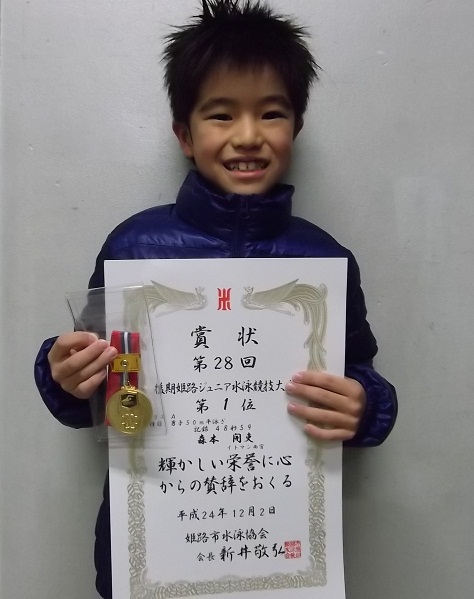 賞状
第28回
後期姫路ジュニア水泳競技大会
第1位
男子50m平泳ぎ
記録 48秒59
森本
イトマン西宮
輝かしい栄誉に心
からの賛辞をおくる
平成24年12月2日
姫路市水泳協会
会長 新井敬弘